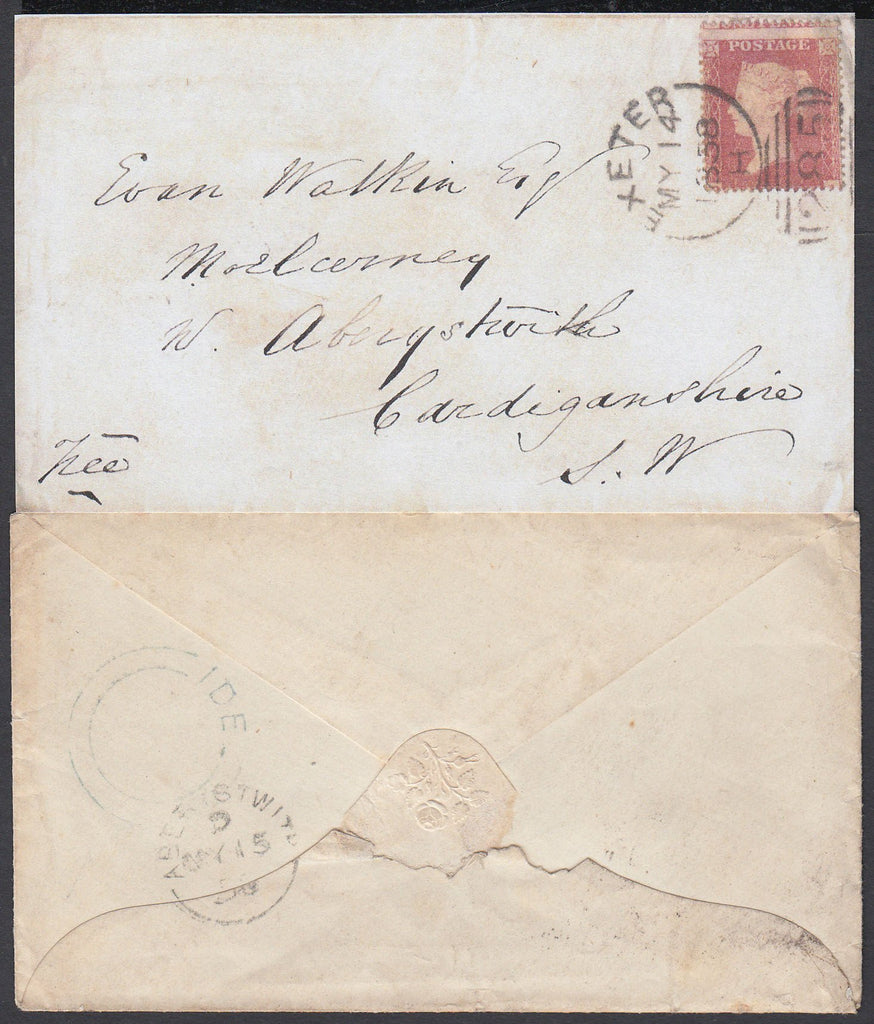 POSTAGE
EXETER
MY 14
1858
I
285
Evan Watkin Esq
W. Aberystwith
Cardiganshire
S. W
Free
IDE
ABERYSTWITH
MY 15
58